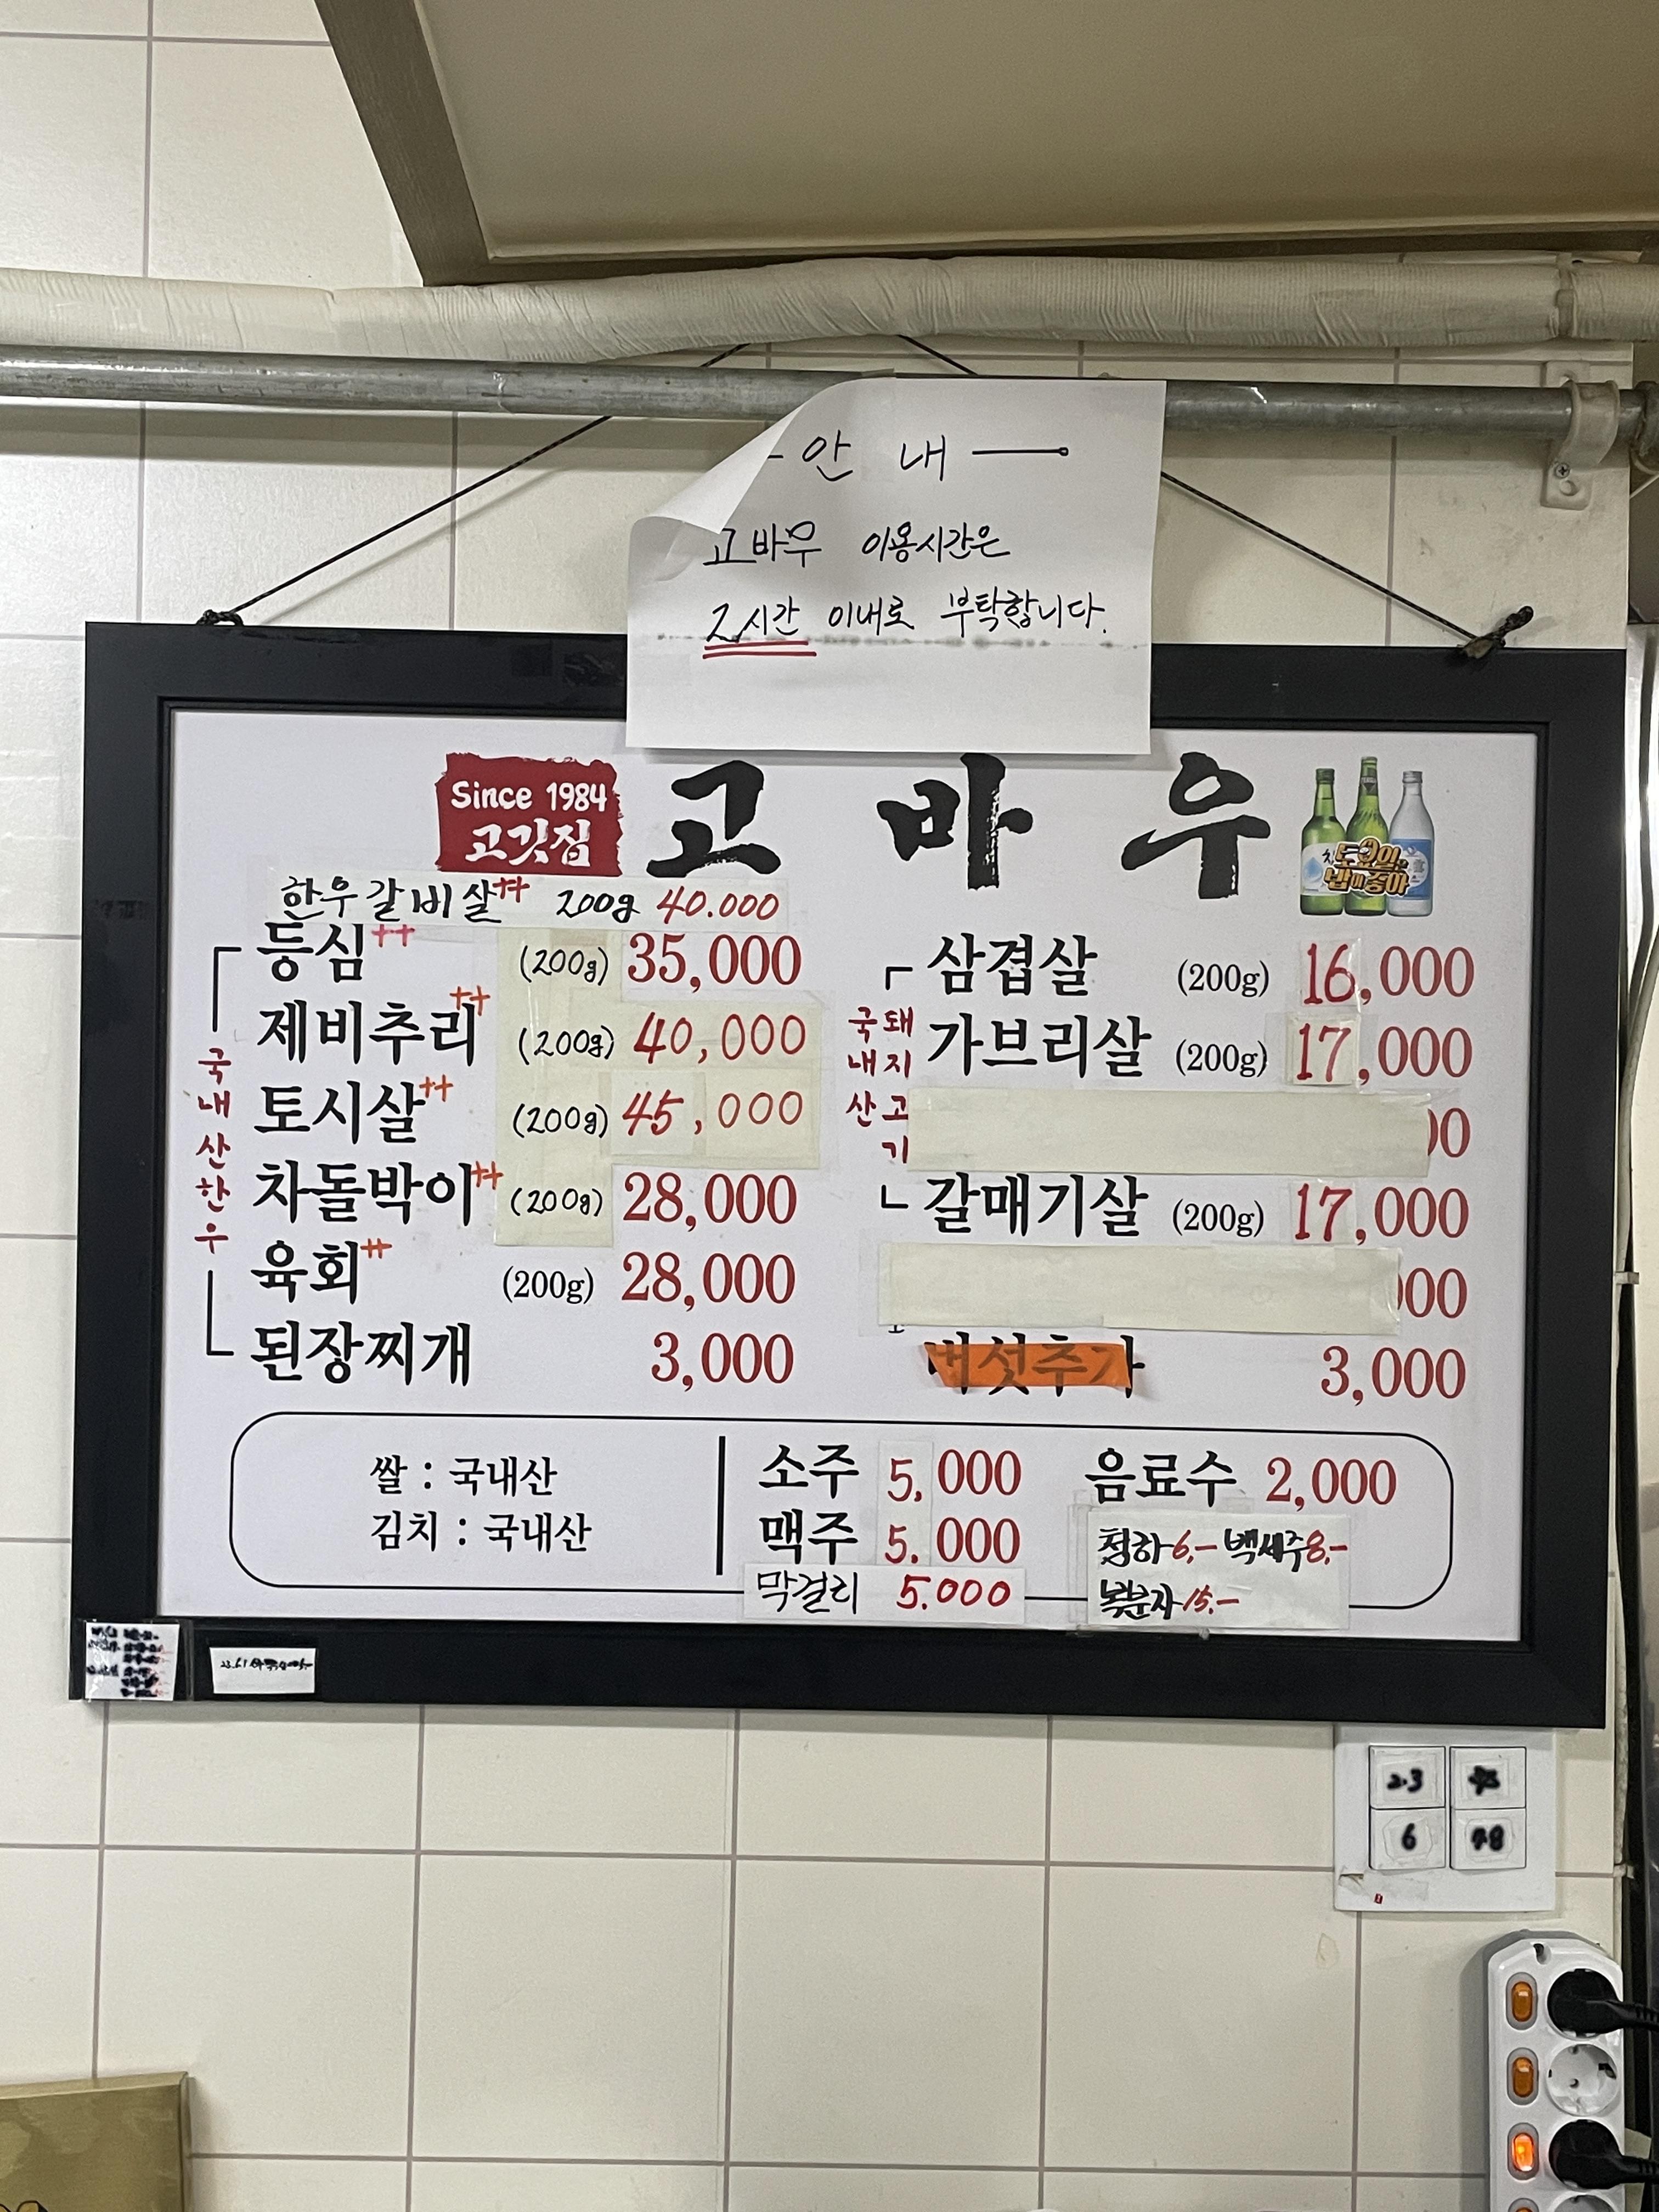 안 내
고바우 이용시간은
2시간 이내로 부탁합니다.
Since 1984
고깃집
고바우
한우갈비살++ 200g 40.000
등심++ (200g) 35,000
제비추리++ (200g) 40,000
토시살++ (200g) 45,000
차돌박이++ (200g) 28,000
육회++ (200g) 28,000
된장찌개 3,000
국내산한우
삼겹살 (200g) 16,000
가브리살 (200g) 17,000
00
갈매기살 (200g) 17,000
000
버섯추가 3,000
국내산
돼지고기
쌀 : 국내산
김치 : 국내산
소주 5,000
맥주 5.000
막걸리 5.000
음료수 2,000
청하 6,- 백세주 8,-
복분자 15.-
2.3
6